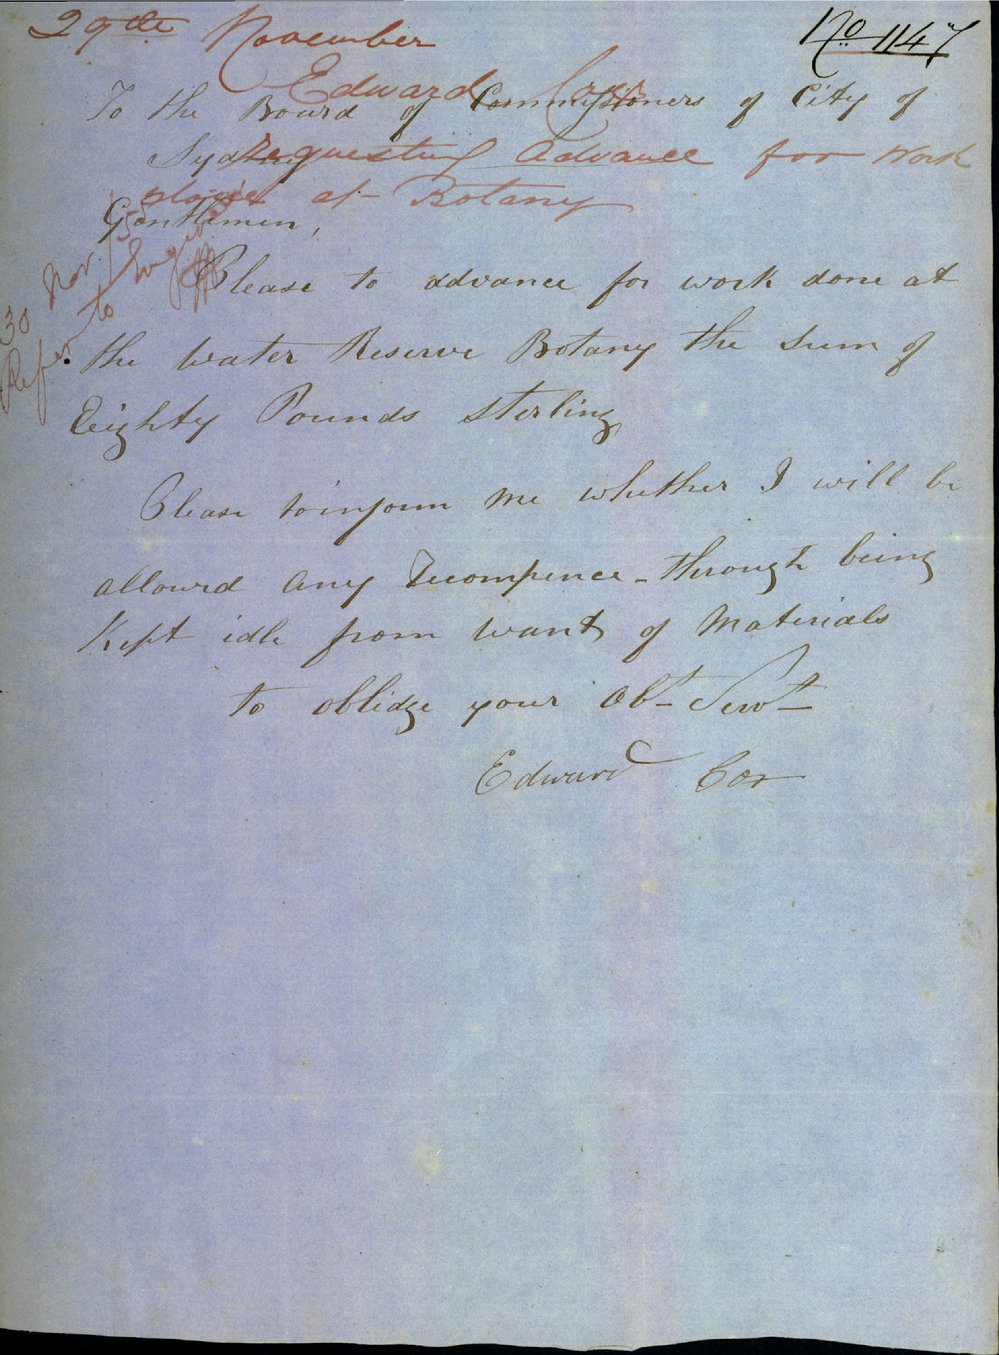 29th November
No 1147
Edward Cox
To the Board of Commissioners of City of
Sydney
requesting advance for work
done at Botany
Gentlemen,
30 Nov. /55
Refer to Engineer
Please to advance for work done at
the water Reserve Botany the Sum of
Eighty Pounds Sterling
Please to inform me whether I will be
allowed any Recompence - through being
Kept idle from want of Materials
to oblidge your Obt Servt
Edward Cox